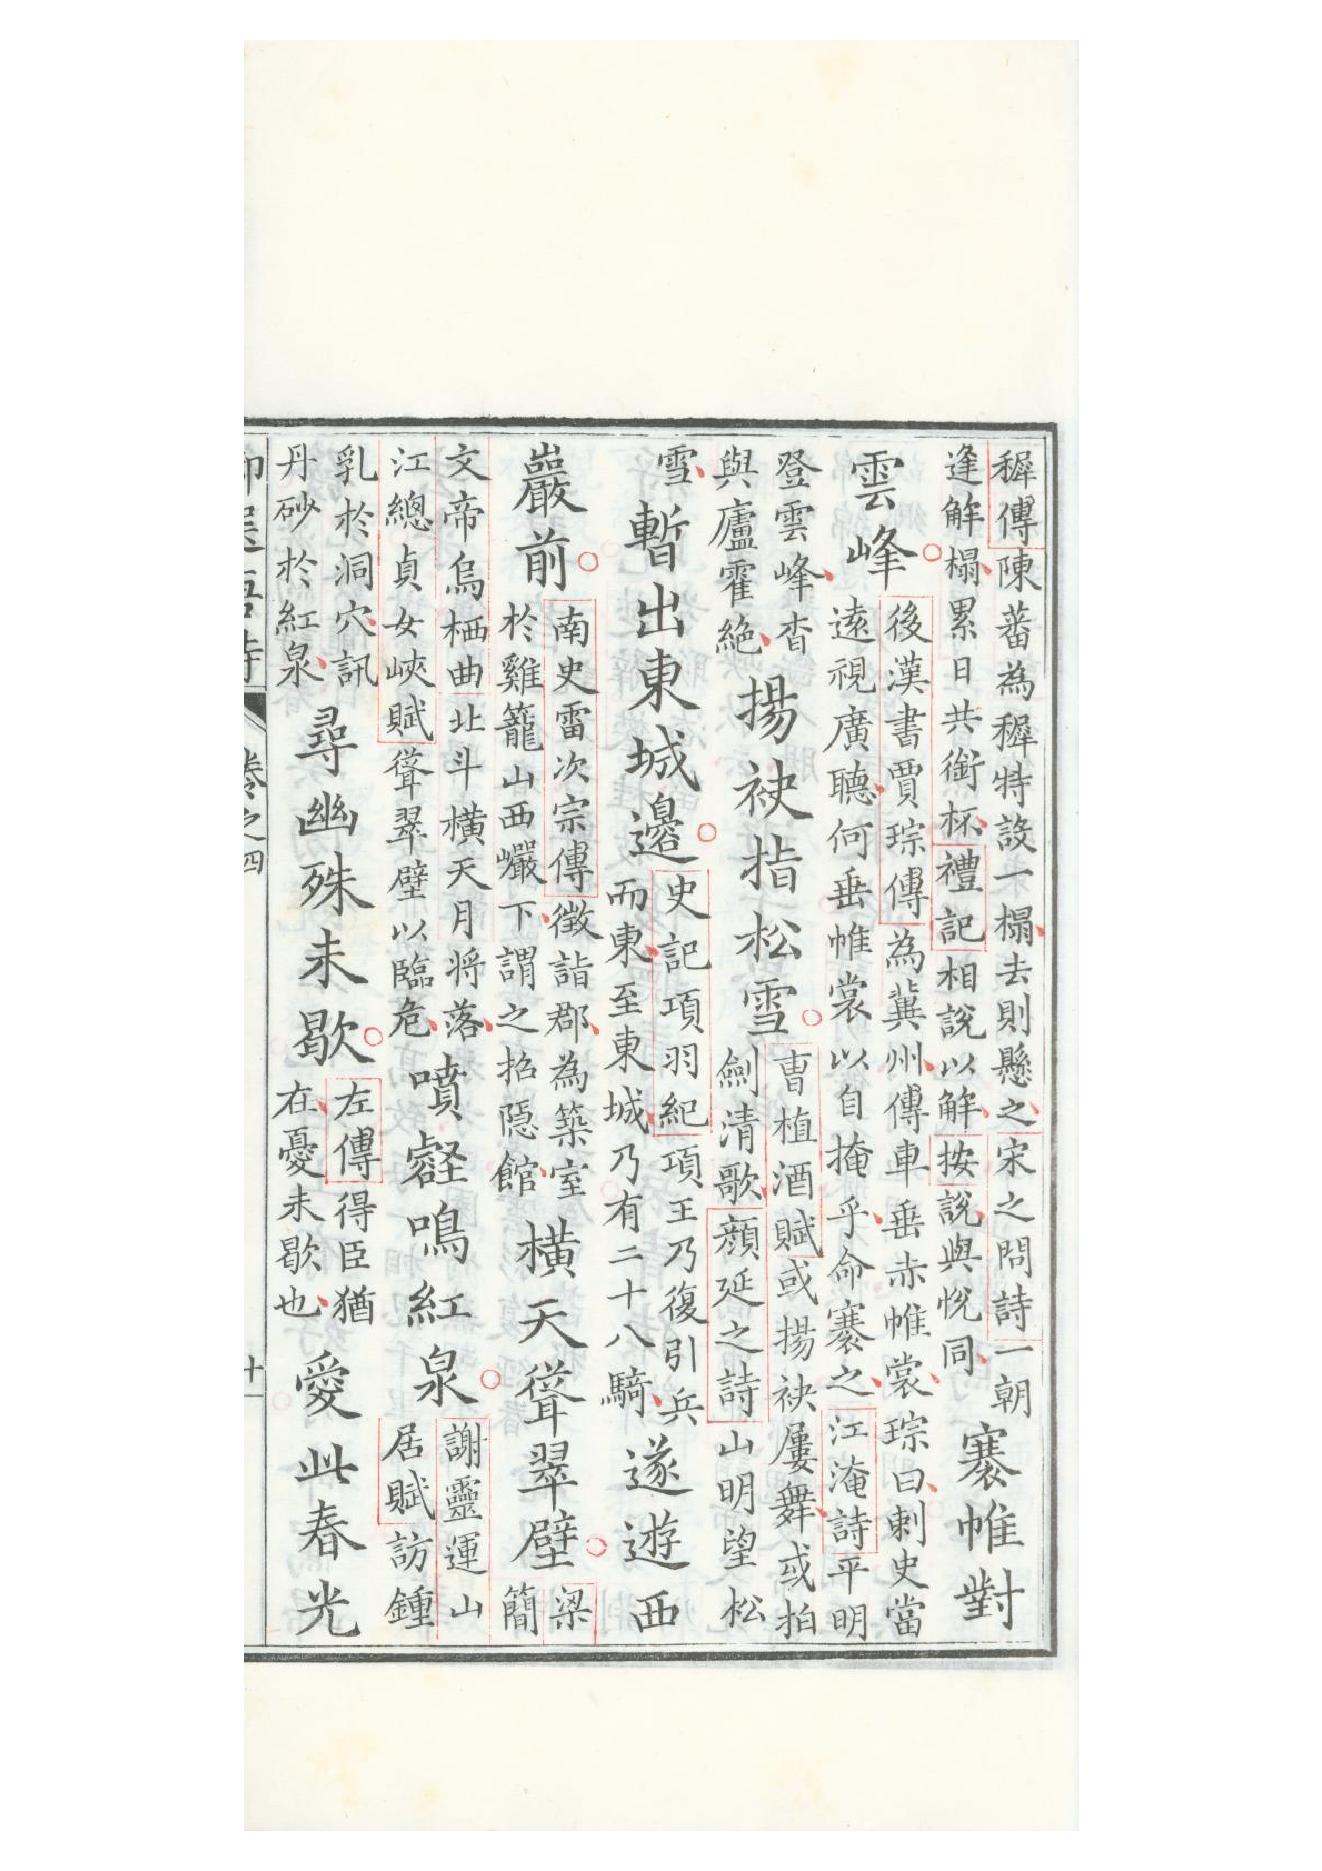 穉傳陳蕃為穉特設一榻去則懸之宋之問詩一朝
逢解榻累日共銜杯禮記相說以解按說與悅同
褰帷對
雲峰
後漢書賈琮傳為冀州傳車垂赤帷裳琮曰刺史當
遠視廣聽何垂帷裳以自掩乎命褰之江淹詩平明
登雲峰杳
與廬霍絶
揚袂指松雪
曹植酒賦或揚袂屢舞或拍
劍清歌顔延之詩山明望松
雪
暫出東城邊
史記項羽紀項王乃復引兵
而東至東城乃有二十八騎
遂遊西
巖前
南史雷次宗傳徵詣郡為築室
於雞籠山西巗下謂之招隱館
橫天聳翠壁
梁
簡
文帝烏栖曲北斗橫天月将落
江總貞女峽賦聳翠壁以臨危
噴壑鳴紅泉
謝靈運山
居賦訪鍾
乳於洞穴訊
丹砂於紅泉
尋幽殊未歇
左傳得臣猶
在憂未歇也
愛此春光
卷之四
十